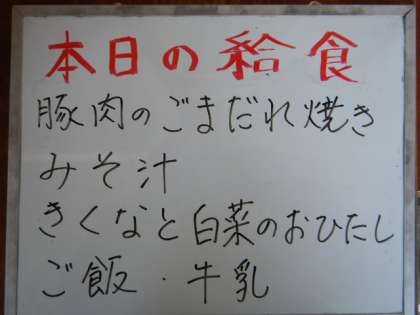 本日の給食
豚肉のごまだれ焼き
みそ汁
きくなと白菜のおひたし
ご飯・牛乳